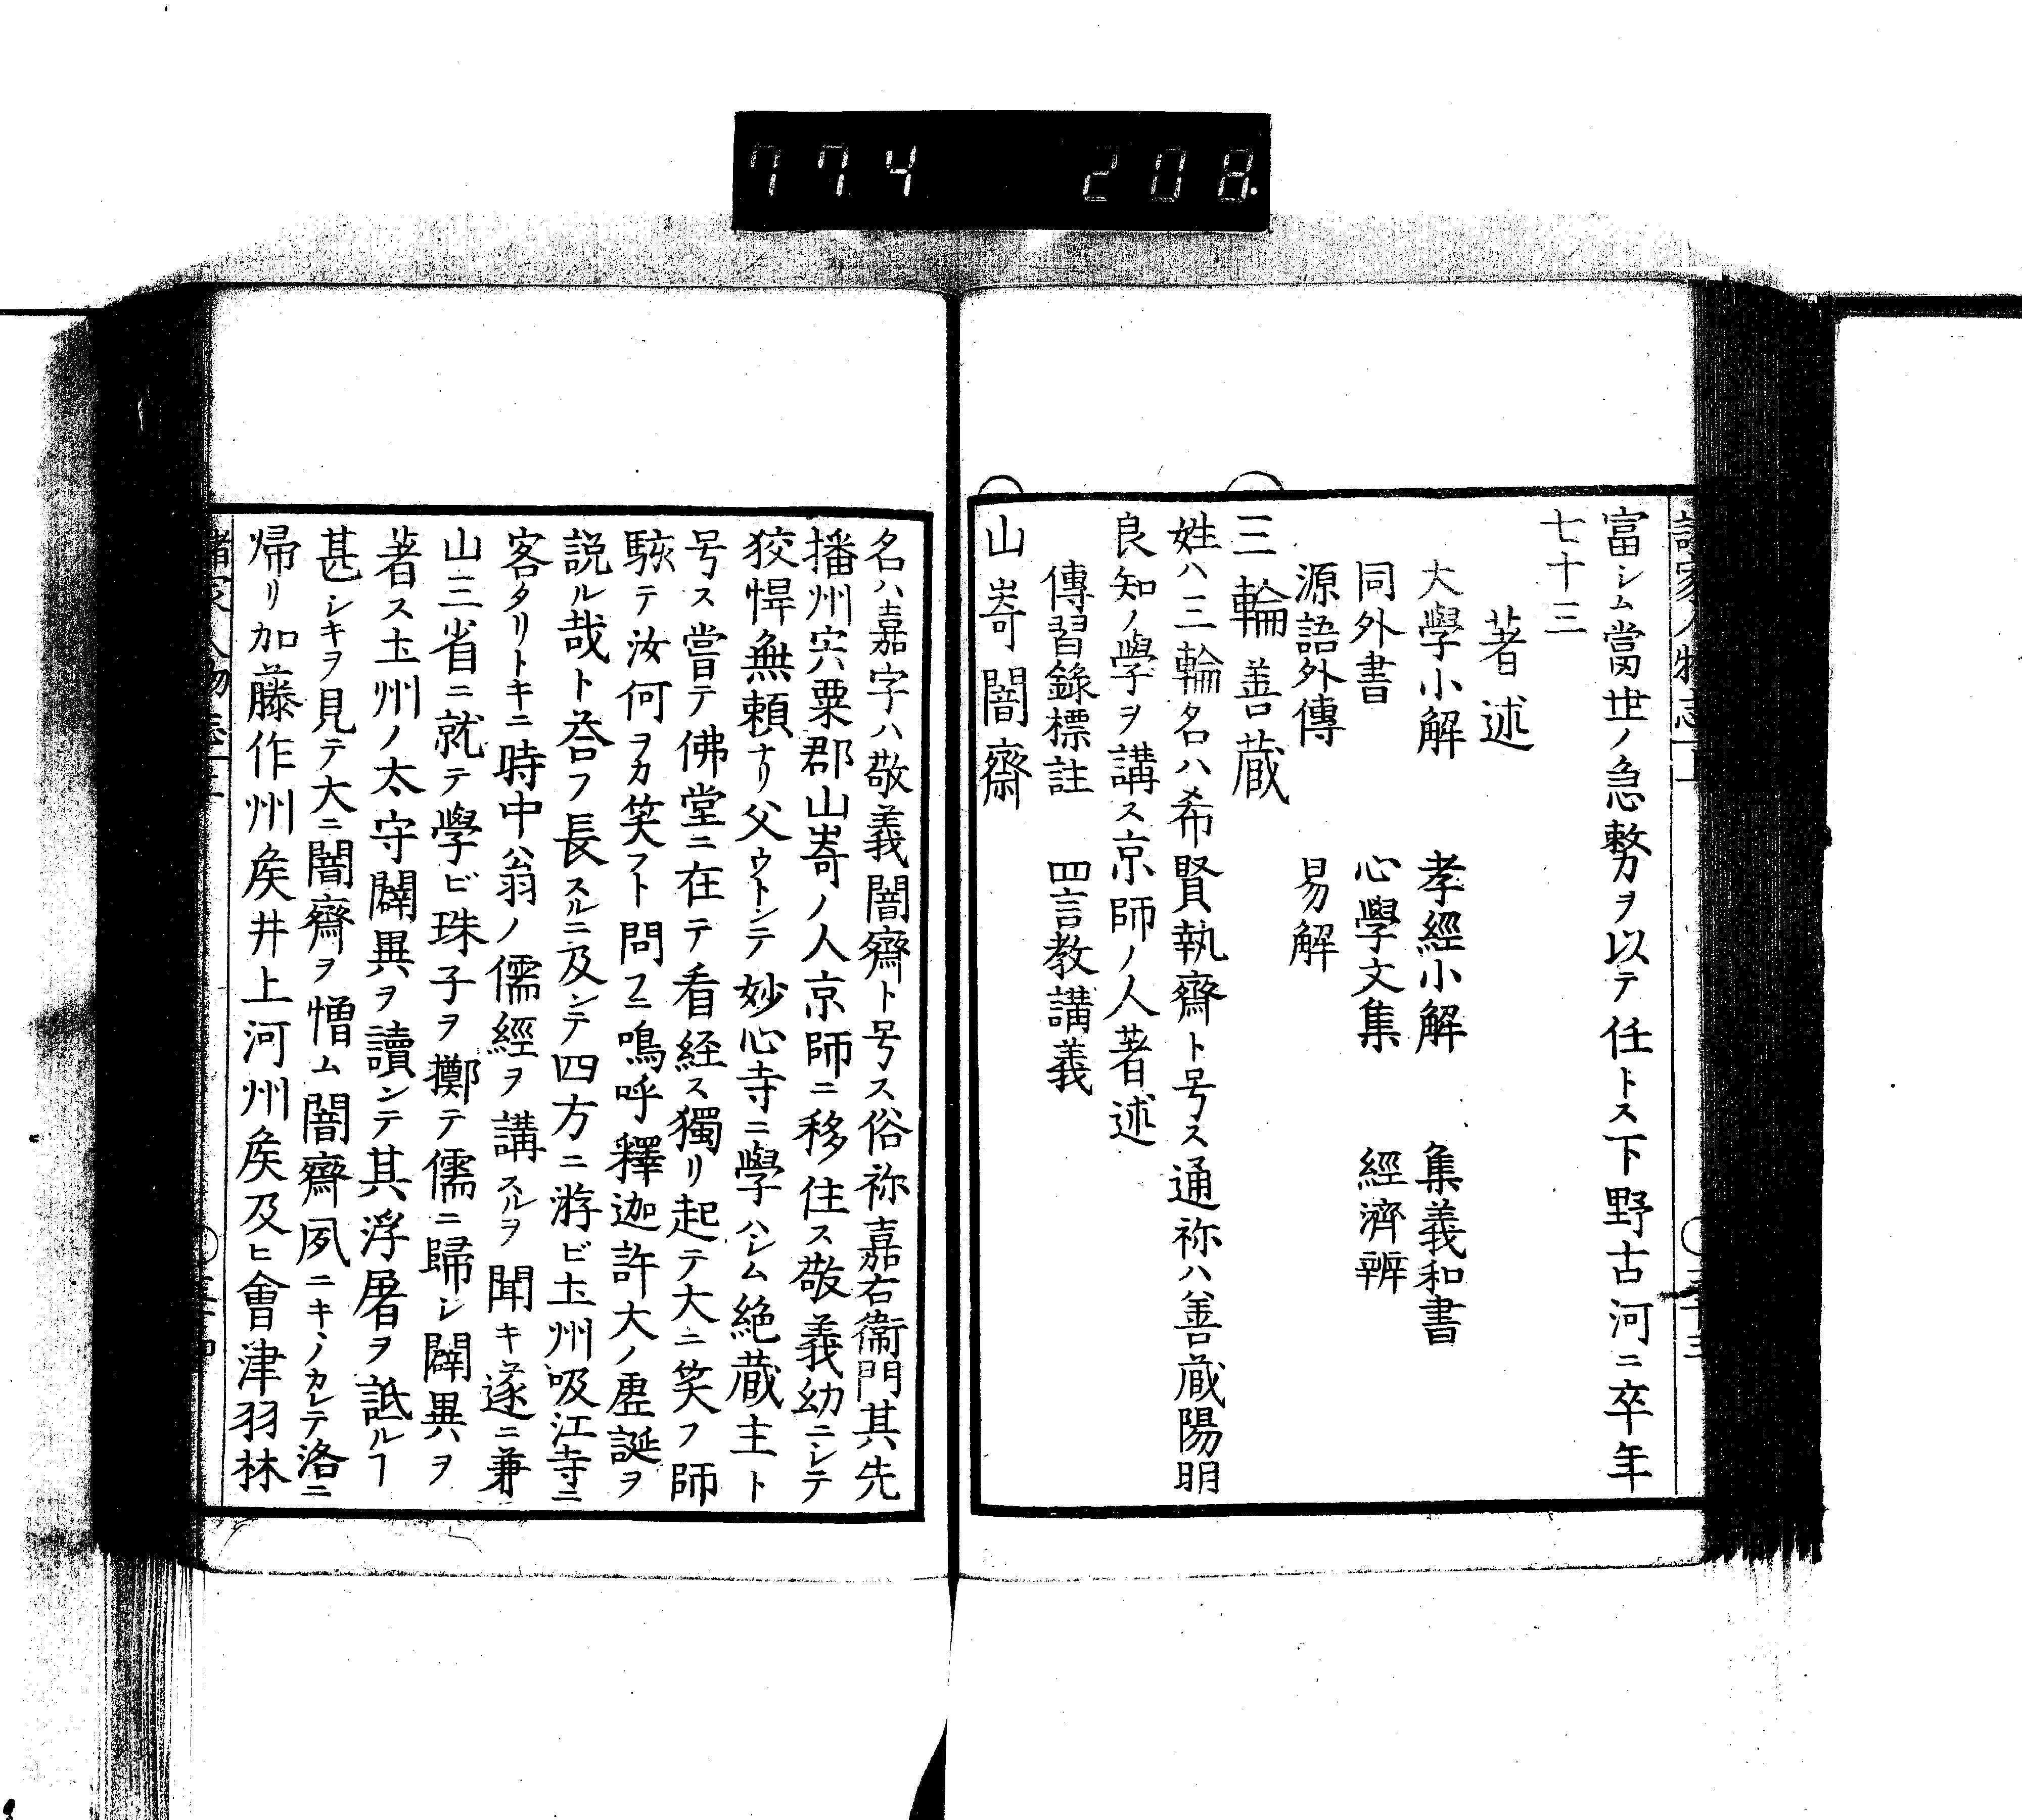 774 208.
富シム當世ノ急務ヲ以テ任トス下野古河ニ卒年
七十三
著述
大學小解 孝經小解 集義和書
同外書 心學文集 經濟辨
源語外傳 易解
三輪善蔵
姓ハ三輪名ハ希賢執齋ト号ス通祢ハ善蔵陽明
良知ノ學ヲ講ス京師ノ人著述
傳習錄標註 四言教講義
山嵜闇齋
名ハ嘉字ハ敬義闇齋ト号ス俗祢嘉右衞門其先
播州宍粟郡山嵜ノ人京師ニ移住ス敬義幼ニシテ
狡悍無頼ナリ父ウトンテ妙心寺ニ學ハシム絶蔵主ト
号ス嘗テ佛堂ニ在テ看経ス獨リ起テ大ニ笑フ師
駭テ汝何ヲカ笑フト問フニ鳴呼釋迦許大ノ虚誕ヲ
説ル哉ト荅フ長スルニ及ンテ四方ニ游ビ圡州吸江寺ニ
客タリトキニ時中ハ翁ノ儒經ヲ講スルヲ聞キ遂ニ兼
山三省ニ就テ學ビ珠子ヲ擲テ儒ニ歸シ闢異ヲ
著ス圡州ノ太守闢異ヲ讀ンテ其浮屠ヲ詆ルヿ
甚シキヲ見テ大ニ闇齋ヲ憎ム闇齋夙ニキヽノカレテ洛ニ
帰リ加藤作州矦井上河州矦及ヒ會津羽林